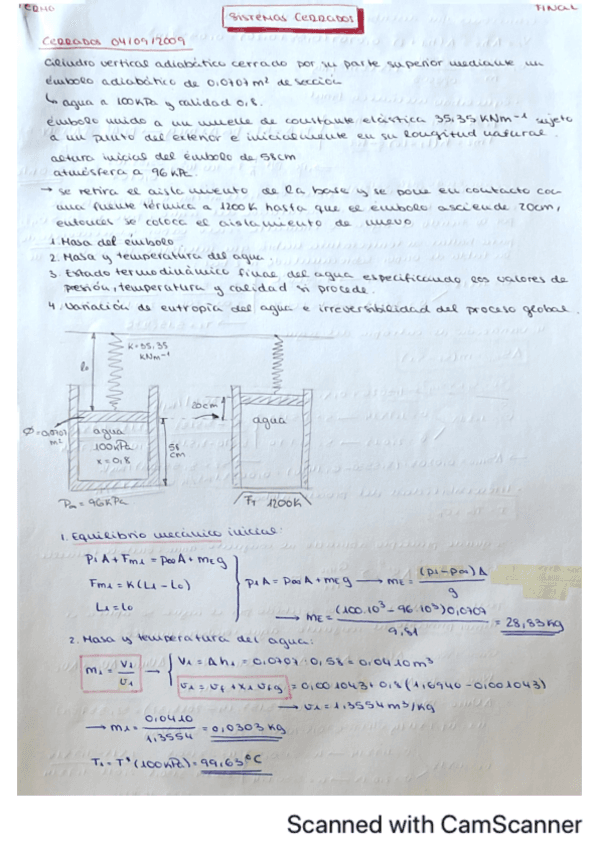 TERMO
SISTEMAS CERRADOS
FINAL
CERRADOS 04/09/2009
Cilindro vertical adiabático cerrado por su parte superior mediante un
émbolo adiabático de 0,0707 m² de sección
↳ agua a 100kPa y calidad 0,8.
émbolo unido a un muelle de constante elástica 35,35 KNm⁻¹ sujeto
a un punto del exterior e inicialmente en su longitud natural.
altura inicial del émbolo de 58cm
atmósfera a 96 kPa.
→ se retira el aislamiento de la base y se pone en contacto con
una fuente térmica a 1200K hasta que el émbolo asciende 20cm,
entonces se coloca el aislamiento de nuevo
1. Masa del émbolo
2. Masa y temperatura del agua.
3. Estado termodinámico final del agua especificando los valores de
presión, temperatura y calidad si procede.
4. Variación de entropía del agua e irreversibilidad del proceso global.
l₀
K=35,35
KNm⁻¹
20cm
Ø=0,0707
m²
agua
100kPa
x=0,8
58
cm
agua
P∞ = 96KPa
FT 1200K
1. Equilibrio mecánico inicial:
P₁A + Fm₁ = P∞A + mE g
Fm₁ = K(L₁ - L₀)
L₁ = L₀
P₁A = P∞A + mE g → mE = (P₁ - P∞)A / g
→ mE = (100·10³ - 96·10³)0,0707 / 9,81 = 28,83 kg
2. Masa y temperatura del agua:
m₁ = V₁ / v₁ → V₁ = A h₁ = 0,0707 · 0,58 = 0,0410 m³
v₁ = vf + x₁ vfg = 0,001043 + 0,8(1,6940 - 0,001043)
→ v₁ = 1,3554 m³/kg
→ m₁ = 0,0410 / 1,3554 = 0,0303 kg
T₁ = T*(100kPa) = 99,63°C
Scanned with CamScanner